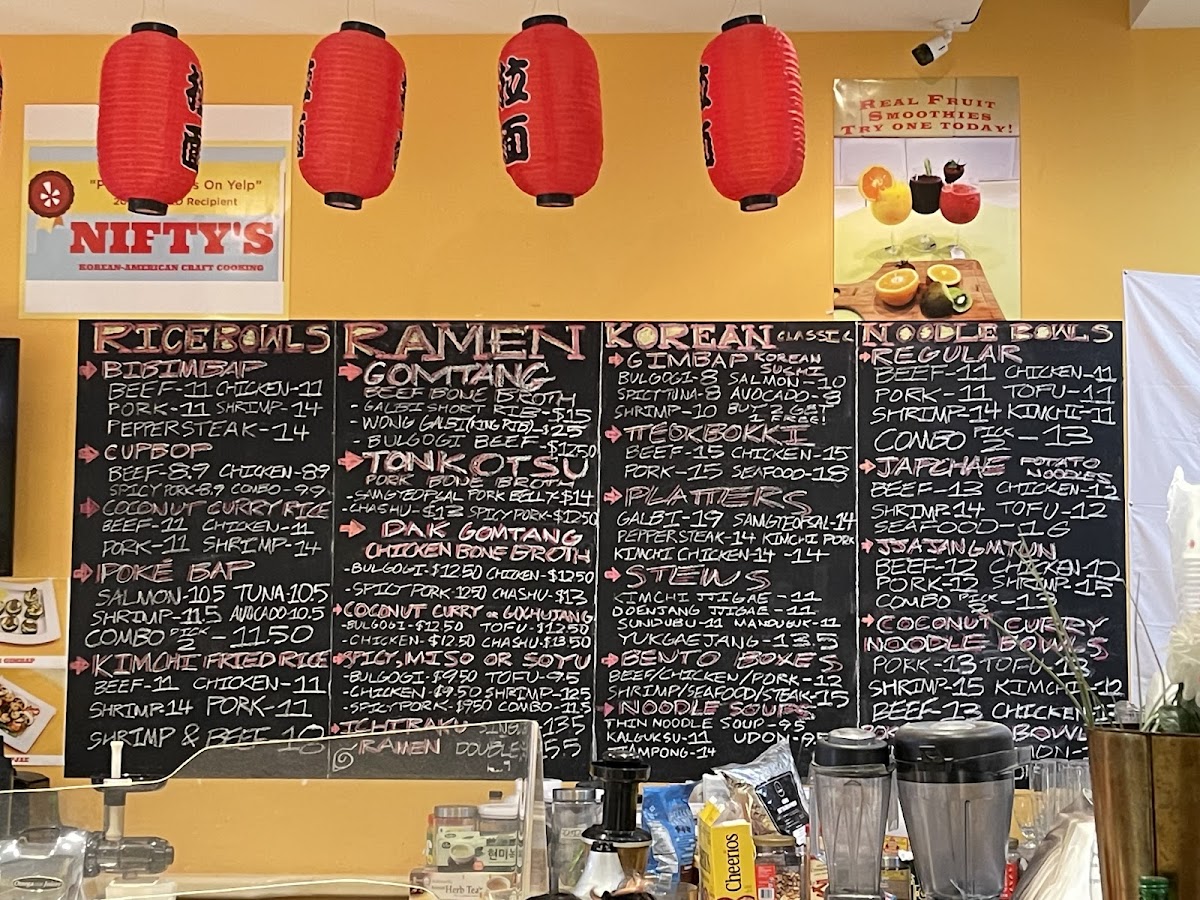 拉
面
拉
面
"P s On Yelp"
20 D Recipient
NIFTY'S
KOREAN-AMERICAN CRAFT COOKING
REAL FRUIT
SMOOTHIES
TRY ONE TODAY!
RICEBOWLS
BIBIMBAP
BEEF-11 CHICKEN-11
PORK-11 SHRIMP-14
PEPPERSTEAK-14
CUPBOP
BEEF-8.9 CHICKEN-8.9
SPICY PORK-8.9 COMBO-9.9
COCONUT CURRY RICE
BEEF-11 CHICKEN-11
PORK-11 SHRIMP-14
POKÉ BAP
SALMON-10.5 TUNA-10.5
SHRIMP-11.5 AVOCADO-10.5
COMBO PICK 2 - 11.50
KIMCHI FRIED RICE
BEEF-11 CHICKEN-11
SHRIMP-14 PORK-11
SHRIMP & BEEF
RAMEN
GOMTANG
BEEF BONE BROTH
-GALBI SHORT RIB-$15
-WONG GALBI (KING RIB)-$25
-BULGOGI BEEF-$12.50
TONKOTSU
PORK BONE BROTH
-SAMGYEOPSAL PORK BELLY-$14
-CHASHU-$13 SPICY PORK-$12.50
DAK GOMTANG
CHICKEN BONE BROTH
-BULGOGI-$12.50 CHICKEN-$12.50
-SPICY PORK-12.50 CHASHU-$13
COCONUT CURRY OR GOCHUJANG
-BULGOGI-$12.50 TOFU-$12.50
-CHICKEN-$12.50 CHASHU-$13.50
SPICY, MISO OR SOYU
-BULGOGI-$9.50 TOFU-9.5
-CHICKEN-$9.50 SHRIMP-12.5
-SPICY PORK-$9.50 COMBO-11.5
ICHIRAKU SINGLE 13.5
RAMEN DOUBLE
KOREAN CLASSIC
GIMBAP KOREAN SUSHI
BULGOGI-8 SALMON-10
SPICY TUNA-8 AVOCADO-8
SHRIMP-10 BUY 2 GET 1 FREE!
TTEOKBOKKI
BEEF-15 CHICKEN-15
PORK-15 SEAFOOD-18
PLATTERS
GALBI-19 SAMGYEOPSAL-14
PEPPERSTEAK-14 KIMCHI PORK
KIMCHI CHICKEN-14 -14
STEWS
KIMCHI JJIGAE-11
DOENJANG JJIGAE-11
SUNDUBU-11 MANDUGUK-11
YUKGAEJANG-13.5
BENTO BOXES
BEEF/CHICKEN/PORK-12
SHRIMP/SEAFOOD/STEAK-15
NOODLE SOUPS
THIN NOODLE SOUP-9.5
KALGUKSU-11 UDON-9.5
JJAMPONG-14
NOODLE BOWLS
REGULAR
BEEF-11 CHICKEN-11
PORK-11 TOFU-11
SHRIMP-14 KIMCHI-11
COMBO PICK 2 - 13
JAPCHAE POTATO NOODLES
BEEF-13 CHICKEN-12
SHRIMP-14 TOFU-12
SEAFOOD-16
JJAJANGMYUN
BEEF-12 CHICKEN-12
PORK-12 SHRIMP-15
COMBO PICK 2
COCONUT CURRY
NOODLE BOWLS
PORK-13 TOFU-13
SHRIMP-15 KIMCHI-12
BEEF-13 CHICKEN
BOWL
Cheerios
현미녹
Herb Tea